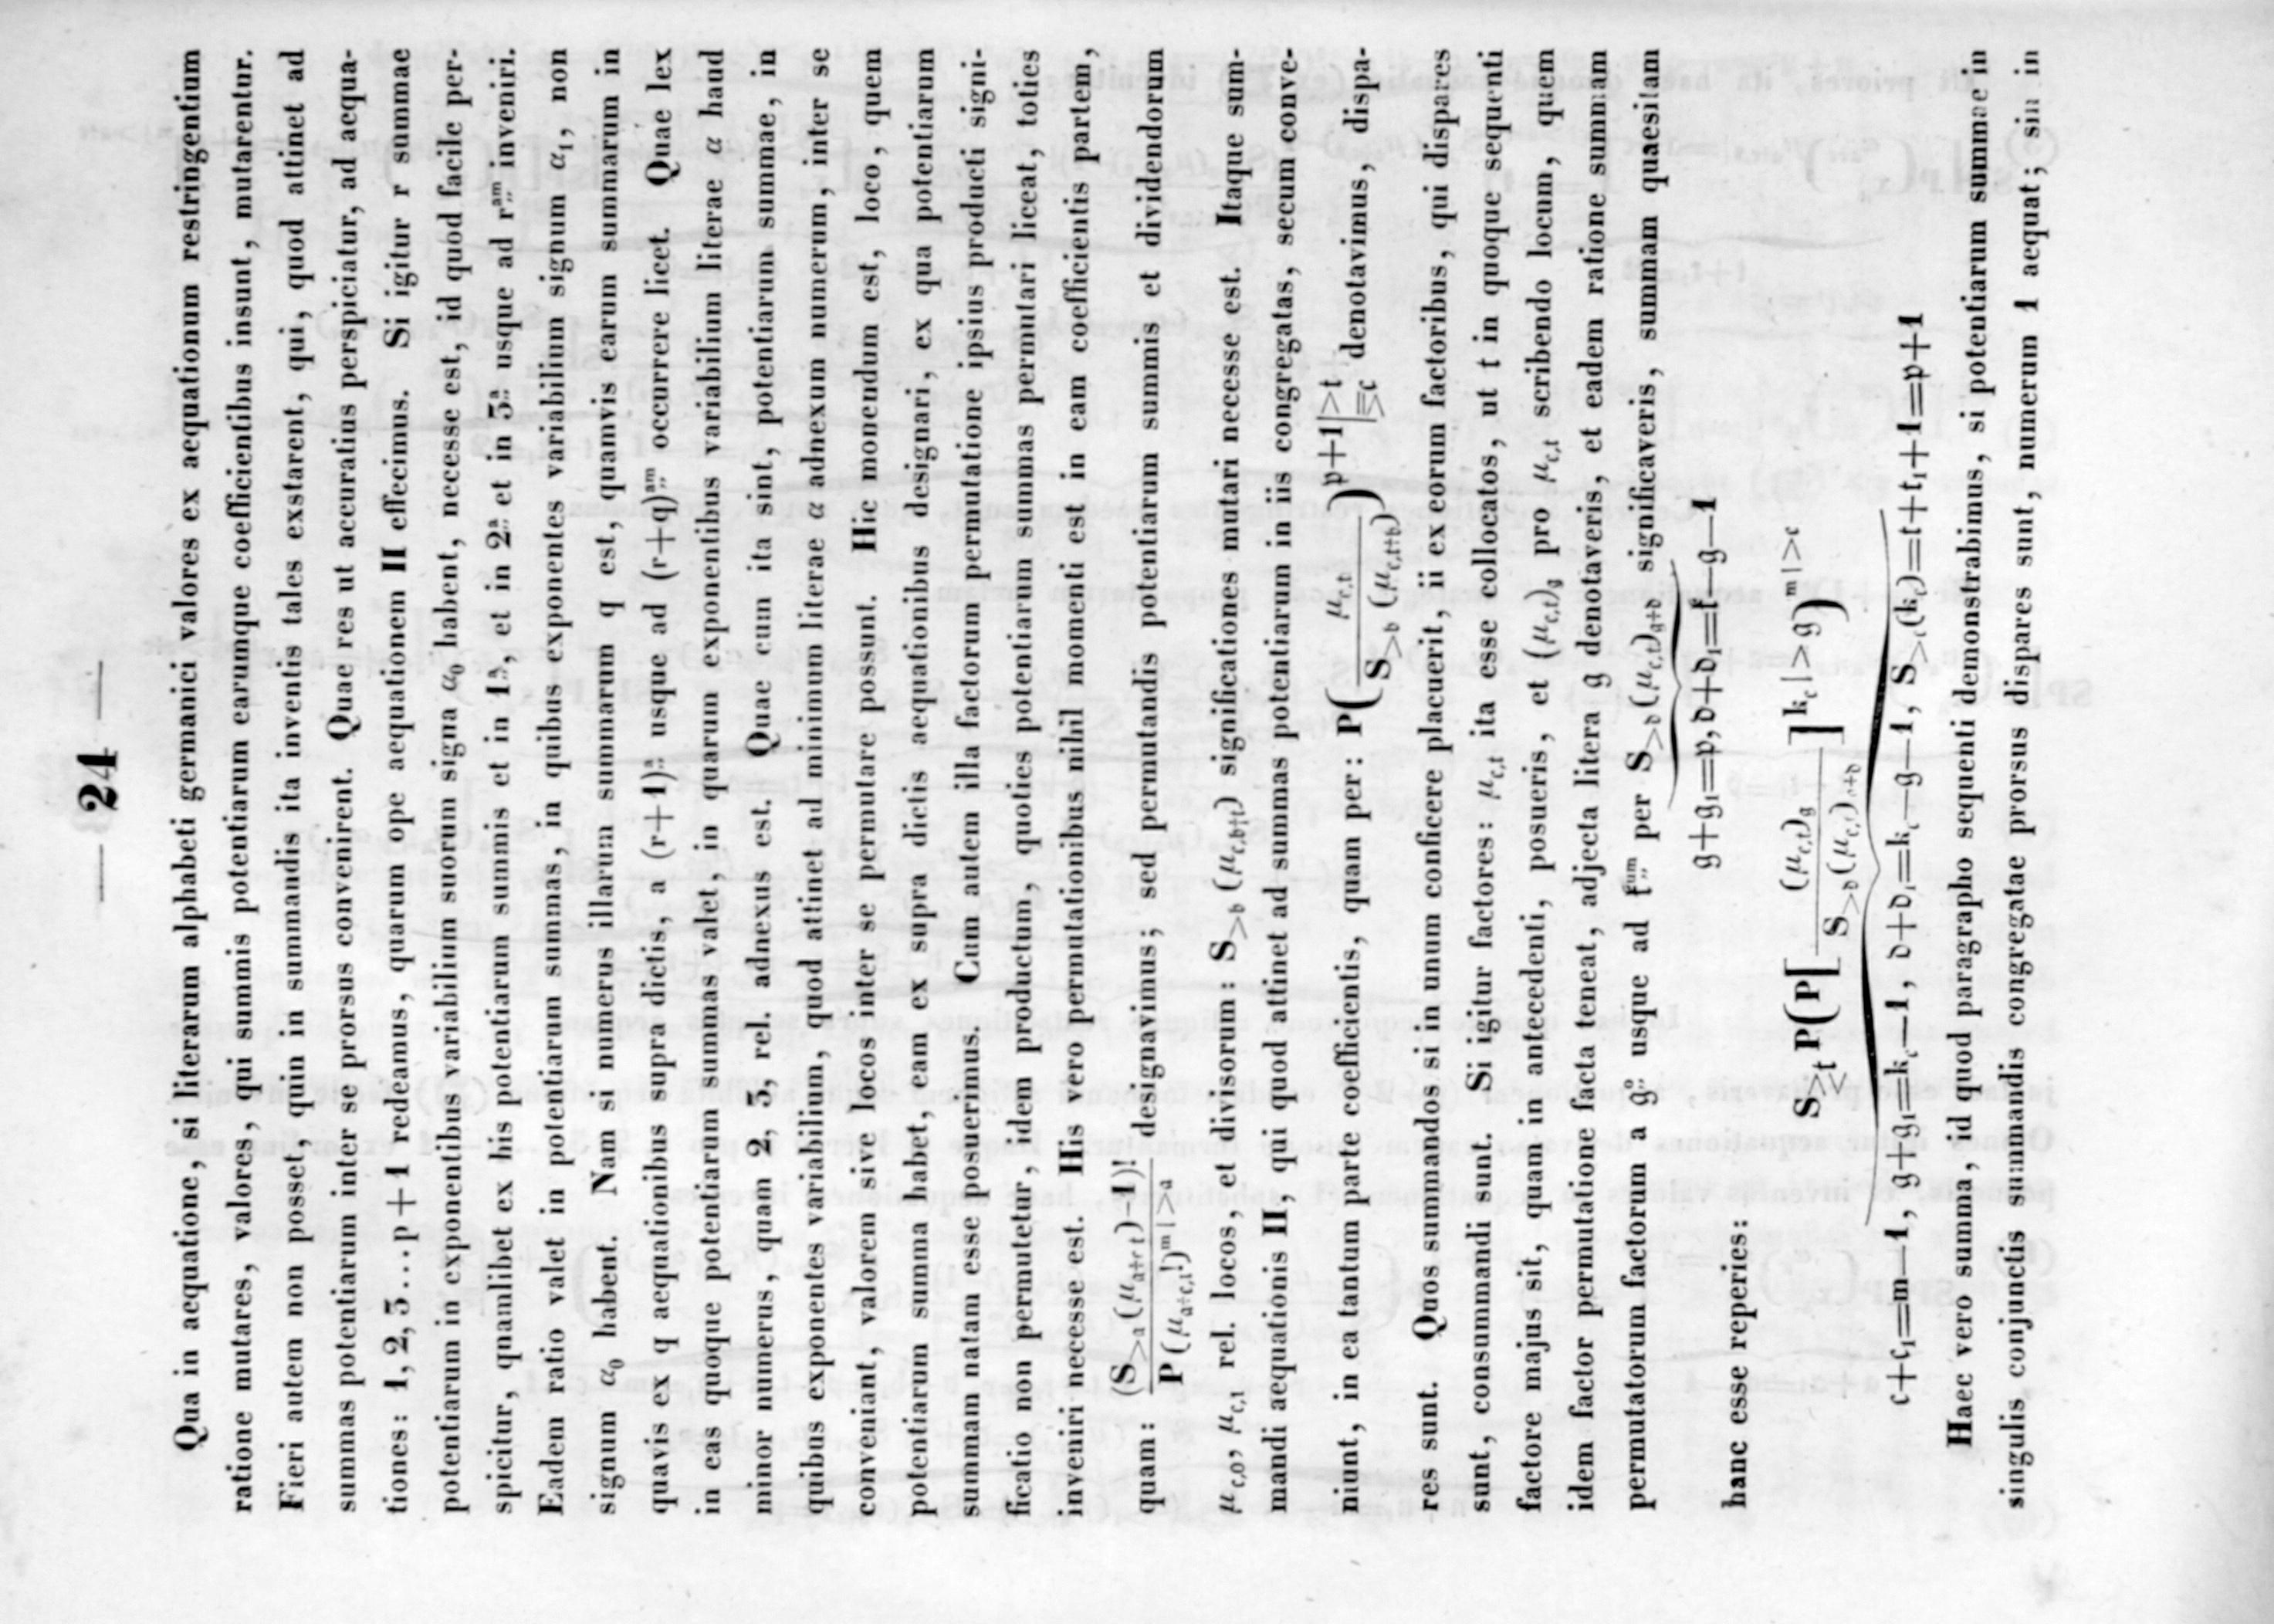 — 24 —
Qua in aequatione, si literarum alphabeti germanici valores ex aequationum restringentium
ratione mutares, valores, qui summis potentiarum earumque coefficientibus insunt, mutarentur.
Fieri autem non posset, quin in summandis ita inventis tales exstarent, qui, quod attinet ad
summas potentiarum inter se prorsus convenirent. Quae res ut accuratius perspiciatur, ad aequa-
tiones: 1, 2, 3...p+1 redeamus, quarum ope aequationem II effecimus. Si igitur r summae
potentiarum in exponentibus variabilium suorum signa α₀ habent, necesse est, id quod facile per-
spicitur, quamlibet ex his potentiarum summis et in 1ª, et in 2ª et in 3ª usque ad rᵃᵐ inveniri.
Eadem ratio valet in potentiarum summas, in quibus exponentes variabilium signum α₁, non
signum α₀ habent. Nam si numerus illarum summarum q est, quamvis earum summarum in
quavis ex q aequationibus supra dictis, a (r+1)ª usque ad (r+q)ᵃᵐ occurrere licet. Quae lex
in eas quoque potentiarum summas valet, in quarum exponentibus variabilium literae α haud
minor numerus, quam 2, 3, rel. adnexus est. Quae cum ita sint, potentiarum summae, in
quibus exponentes variabilium, quod attinet ad minimum literae α adnexum numerum, inter se
conveniant, valorem sive locos inter se permutare possunt. Hic monendum est, loco, quem
potentiarum summa habet, eam ex supra dictis aequationibus designari, ex qua potentiarum
summam natam esse posuerimus. Cum autem illa factorum permutatione ipsius producti signi-
ficatio non permutetur, idem productum, quoties potentiarum summas permutari liceat, toties
inveniri necesse est. His vero permutationibus nihil momenti est in eam coefficientis partem,
quam: (S>a(μa+c,t)−1)! / P(μa+c,t)ᵐ|>a designavimus; sed permutandis potentiarum summis et dividendorum
μc,0, μc,1 rel. locos, et divisorum: S>b (μc,b+t) significationes mutari necesse est. Itaque sum-
mandi aequationis II, qui quod attinet ad summas potentiarum in iis congregatas, secum conve-
niunt, in ea tantum parte coefficientis, quam per: P(μc,b / S>b (μc,t+b))p+1|>t =c denotavimus, dispa-
res sunt. Quos summandos si in unum conficere placuerit, ii ex eorum factoribus, qui dispares
sunt, consummandi sunt. Si igitur factores: μc,t ita esse collocatos, ut t in quoque sequenti
factore majus sit, quam in antecedenti, posueris, et (μc,t)g pro μc,t scribendo locum, quem
idem factor permutatione facta teneat, adjecta litera g denotaveris, et eadem ratione summam
permutatorum factorum a g° usque ad fᵘᵐ per S>d(μc,t)g+d significaveris, summam quaesitam
g+g₁=p, d+d₁=f−g−1
hanc esse reperies:
S>t P(P[(μc,t)g / S>d(μc,t)g+d] kc|>g)ᵐ|>c
c+c₁=m−1, g+g₁=kc−1, d+d₁=kc−g−1, S>c(kc)=t+t₁+1=p+1
Haec vero summa, id quod paragrapho sequenti demonstrabimus, si potentiarum summae in
singulis conjunctis summandis congregatae prorsus dispares sunt, numerum 1 aequat; sin in